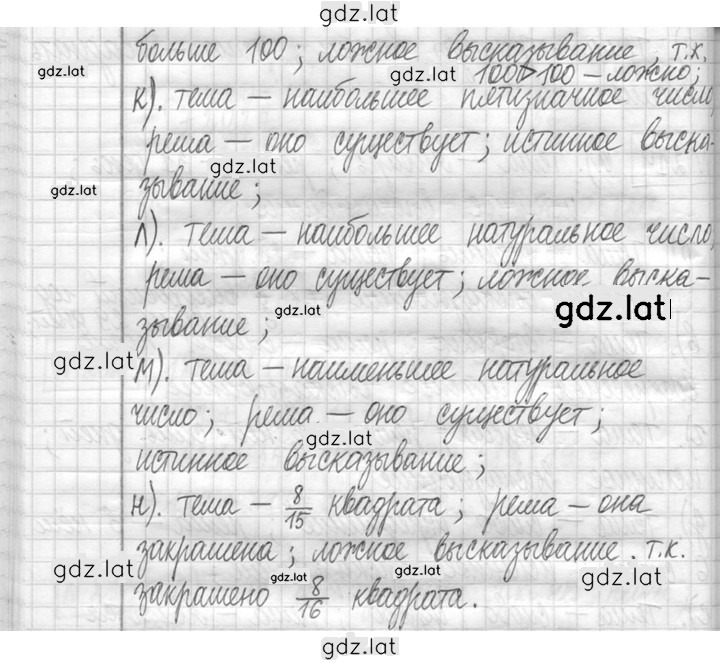 gdz.lat
больше 100; ложное высказывание, т.к.
gdz.lat gdz.lat 100>100 – ложно;
к). тема – наибольшее пятизначное число,
рема – оно существует; истинное выска-
gdz.lat gdz.lat
зывание;
л). тема – наибольшее натуральное число,
рема – оно существует; ложное выска-
gdz.lat gdz.lat
зывание;
gdz.lat
м). тема – наименьшее натуральное
число; рема – оно существует;
gdz.lat
истинное высказывание;
н). тема – 8/15 квадрата; рема – она
закрашена; ложное высказывание. т.к.
gdz.lat gdz.lat gdz.lat gdz.lat
закрашено 8/16 квадрата.
gdz.lat